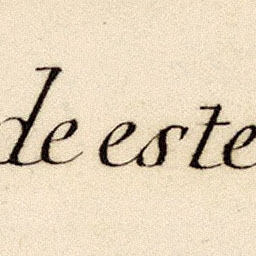 de este